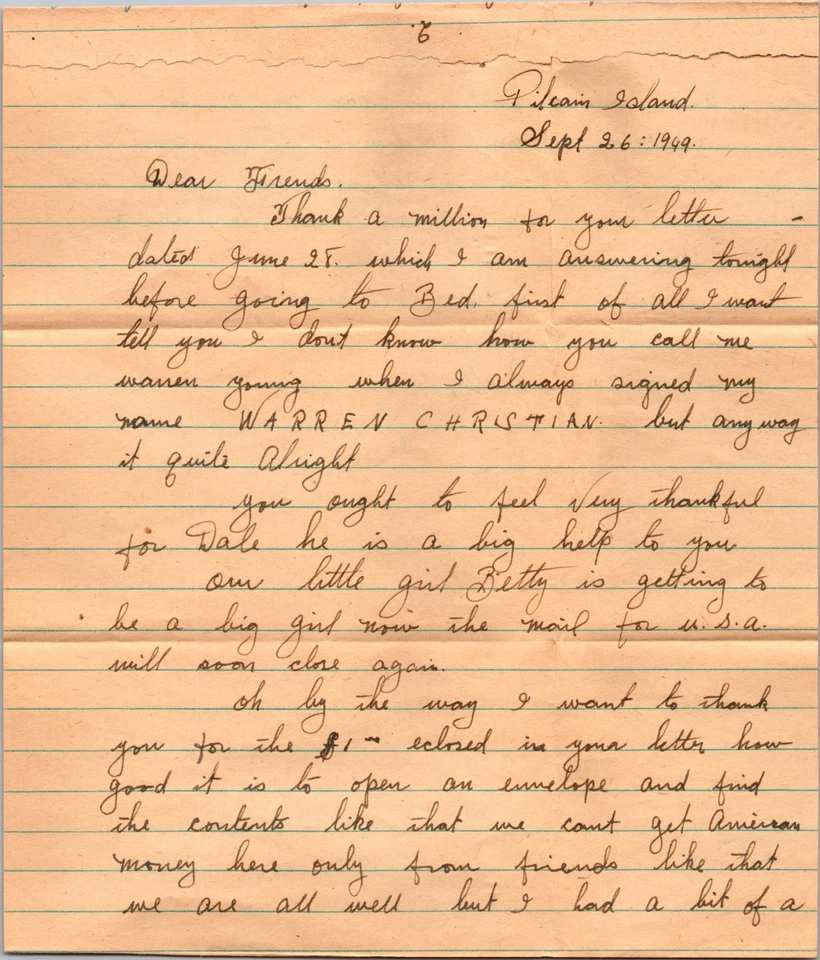 6
Pitcairn Island.
Sept 26: 1949.
Dear Friends.
Thank a million for your letter -
dated June 28. which I am answering tonight
before going to Bed. first of all I want
tell you I dont know how you call me
warren young when I always signed my
name WARREN CHRISTIAN. but anyway
it quite Alright
you ought to feel Very thankful
for Dale he is a big help to you
our little girl Betty is getting to
be a big girl now the mail for u.s.a.
will soon close again.
oh by the way I want to thank
you for the $1 - eclosed in your letter how
good it is to open an envelope and find
the contents like that we cant get American
money here only from friends like that
we are all well but I had a bit of a